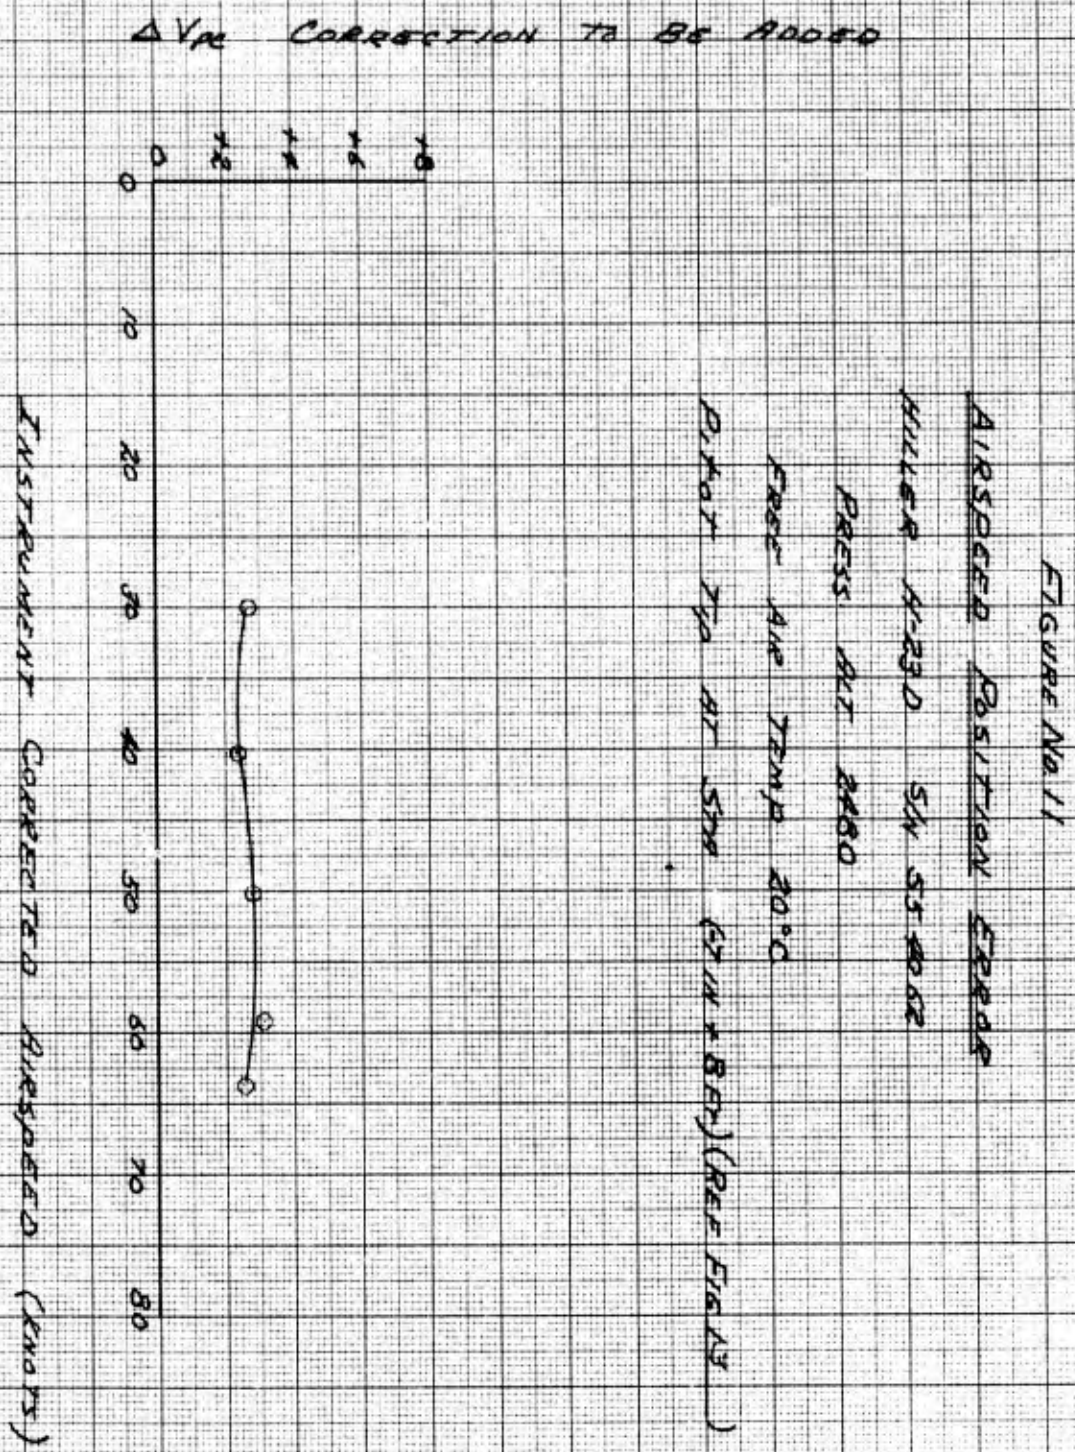 FIGURE No. 11
AIRSPEED POSITION ERROR
HILLER H-23D S/N 55-4062
PRESS. ALT 2480
FREE AIR TEMP 20°C
PITOT TIP AT STA (REF FIG 13)
Δ Vpc CORRECTION TO BE ADDED
+8
+6
+4
+2
0
0 10 20 30 40 50 60 70 80
INSTRUMENT CORRECTED AIRSPEED (KNOTS)